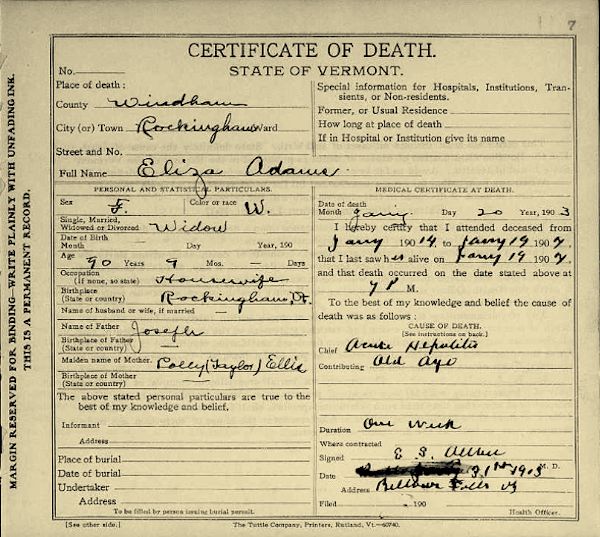 7
CERTIFICATE OF DEATH.
STATE OF VERMONT.
No.
Place of death:
County Windham
City (or) Town Rockingham Ward
Street and No.
Full Name Eliza Adams
Special information for Hospitals, Institutions, Tran-
sients, or Non-residents.
Former, or Usual Residence
How long at place of death
If in Hospital or Institution give its name
PERSONAL AND STATISTICAL PARTICULARS.
Sex F. Color or race W.
Single, Married,
Widowed or Divorced Widow
Date of Birth
Month Day Year, 190
Age
90 Years 9 Mos. — Days
Occupation
(If none, so state) Housewife
Birthplace
(State or country) Rockingham, Vt.
Name of husband or wife, if married —
Name of Father Joseph
Birthplace of Father
(State or country) —
Maiden name of Mother. Polly (Taylor) Ellis
Birthplace of Mother
(State or country) —
The above stated personal particulars are true to the
best of my knowledge and belief.
Informant
Address
Place of burial
Date of burial
Undertaker
Address
To be filled by person issuing burial permit.
MEDICAL CERTIFICATE AT DEATH.
Date of death
Month Day 20 Year, 190 3
I hereby certify that I attended deceased from
190 to 190
that I last saw her alive on 190
and that death occurred on the date stated above at
7 P M.
To the best of my knowledge and belief the cause of
death was as follows:
CAUSE OF DEATH.
[See instructions on back.]
Chief Acute Hepatitis
Contributing Old Age
Duration One Week
Where contracted
Signed E. S. M. D.
Date 31st 1903
Address Bellows Falls Vt
Filed 190 Health Officer.
[See other side.]
The Tuttle Company, Printers, Rutland, Vt.—60740.
MARGIN RESERVED FOR BINDING—WRITE PLAINLY WITH UNFADING INK.
THIS IS A PERMANENT RECORD.